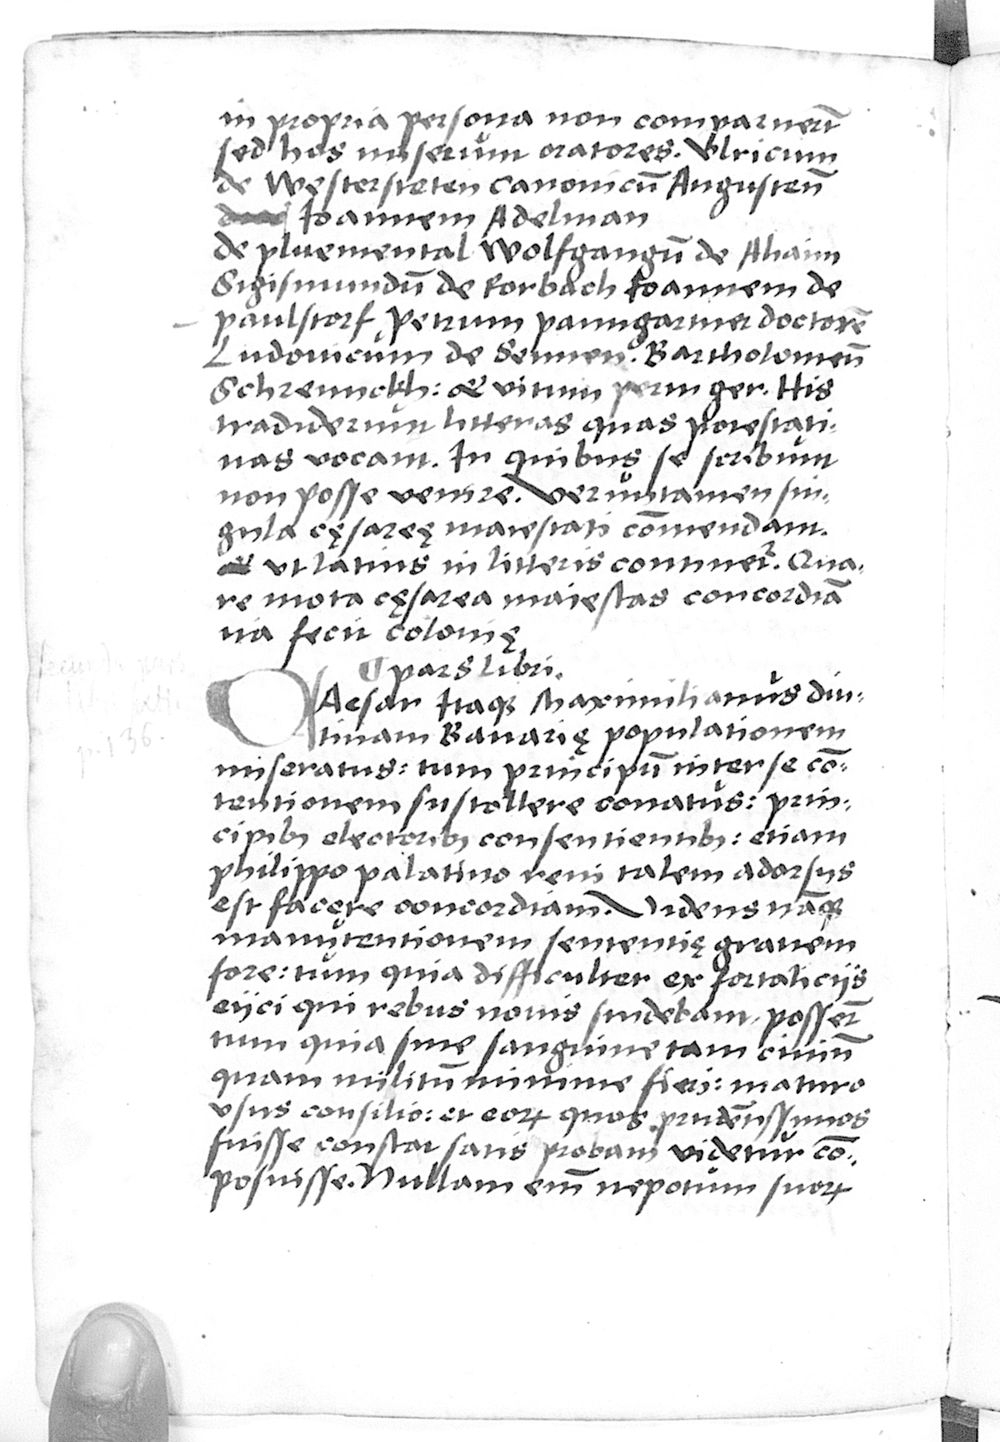 in propria persona non comparuerūt
sed hos miserunt oratores. Vlricum
de Westersteten canonicū Augustenū
Ioannem Adelman
de pluemental Wolfgangū de Ahaim
Sigismundū de Rorbach Ioannem de
paulstorf, Petrum paumgartner doctorē
Ludouicum de Sennen. Bartholomeū
Schrennckh: et vitum peringer. His
tradiderunt litteras quas potestati-
uas vocant. In quibus se scribunt
non posse venire. Veruntamen sin-
gula cęsareę maiestati cōmendant.
vt latius in litteris continet᷑. Qua-
re mota cęsarea maiestas concordiā
fecit colonię
¶ pars libri.
CAesar Itaqꝫ Maximilianus diu-
tinam Bauarię populationem
miseratus: tum principū inter se cō-
tentionem sustollere conatus: prin-
cipibꝫ electoribꝫ consentientibꝫ: etiam
philippo palatino reni talem adorsus
est facere concordiam. Videns nāqꝫ
manutentionem sententię grauem
fore: tum quia difficulter ex fortaliciis
eiici qui rebus nouis studebant possēt
tum quia sine sanguine tam ciuiū
quam militū minime fieri: maturo
vsus consilio: et eoꝝ quos prudētissimos
fuisse constat satis probam videtur cō-
posuisse. Nullam em̄ nepotum suoꝝ
p. 136.